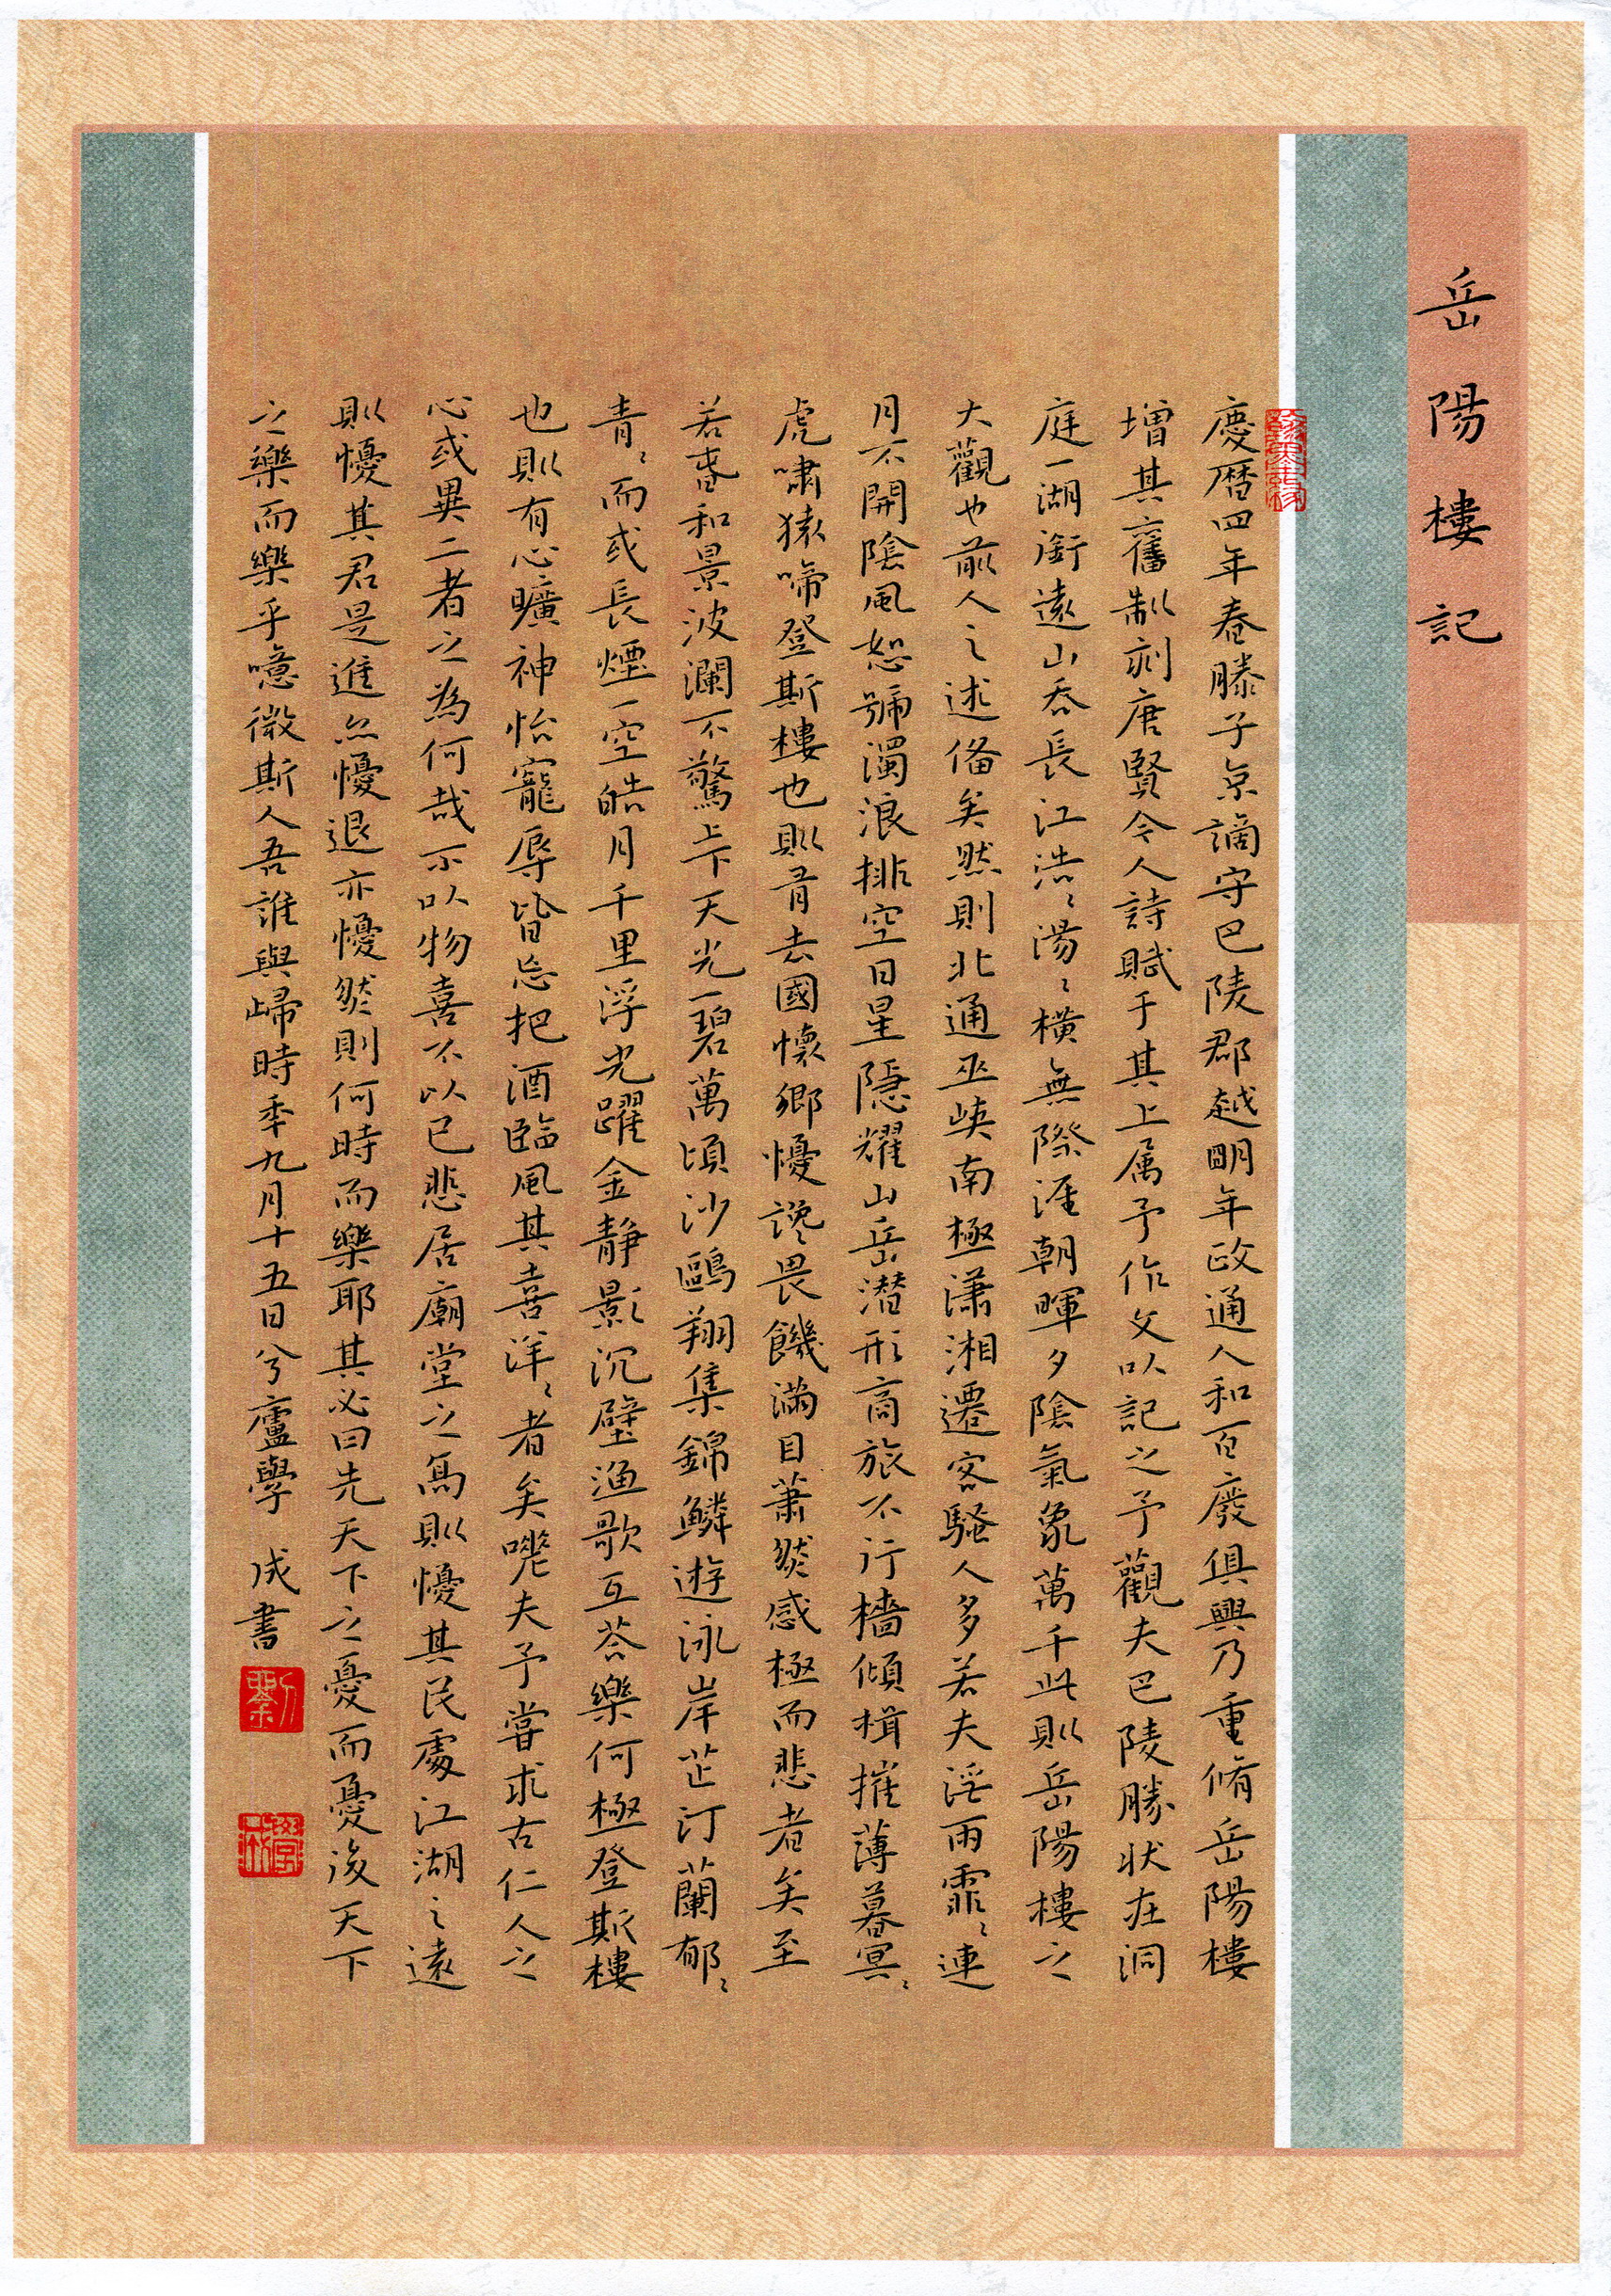 岳陽樓記
慶曆四年春滕子京謫守巴陵郡越明年政通人和百廢俱興乃重脩岳陽樓
增其舊制刻唐賢今人詩賦于其上属予作文以記之予觀夫巴陵勝状在洞
庭一湖銜遠山吞長江浩〻湯〻橫無際涯朝暉夕陰氣象萬千此則岳陽樓之
大觀也前人之述俻矣然則北通巫峽南極瀟湘遷客騷人多若夫淫雨霏〻連
月不開陰風怒號濁浪排空日星隱耀山岳潛形商旅不行檣傾楫摧薄暮冥〻
虎嘯猿啼登斯樓也則有去國懷鄉懮讒畏饑滿目蕭然感極而悲者矣至
若春和景波瀾不驚上下天光一碧萬頃沙鷗翔集錦鱗遊泳岸芷汀蘭郁〻
青〻而或長煙一空皓月千里浮光躍金靜影沉璧漁歌互荅樂何極登斯樓
也則有心曠神怡寵辱皆忘把酒臨風其喜洋〻者矣嗟夫予嘗求古仁人之
心或異二者之為何哉不以物喜不以己悲居廟堂之高則懮其民處江湖之遠
則懮其君是進亦懮退亦懮然則何時而樂耶其必曰先天下之憂而憂後天下
之樂而樂乎噫微斯人吾誰與歸時年九月十五日兮廬學 成書
劉
學成